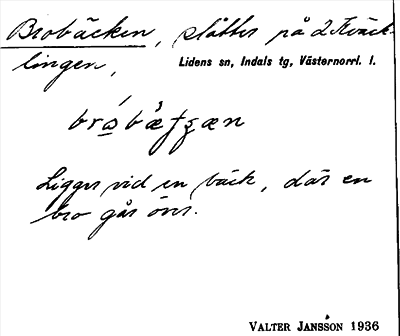 Brobäcken, slåtter på
lingen,
Lidens sn, Indals tg, Västernorrl. l.
Ligger vid en bäck, där en
bro går över.
VALTER JANSSON 1936